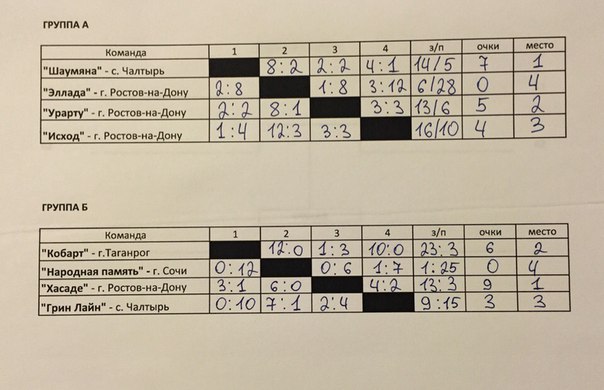 ГРУППА А
Команда 1 2 3 4 з/п очки место
"Шаумяна" - с. Чалтырь 8:2 2:2 4:1 14/5 7 1
"Эллада" - г. Ростов-на-Дону 2:8 1:8 3:12 6/28 0 4
"Урарту" - г. Ростов-на-Дону 2:2 8:1 3:3 13/6 5 2
"Исход" - г. Ростов-на-Дону 1:4 12:3 3:3 16/10 4 3
ГРУППА Б
Команда 1 2 3 4 з/п очки место
"Кобарт" - г.Таганрог 12:0 1:3 10:0 23:3 6 2
"Народная память" - г. Сочи 0:12 0:6 1:7 1:25 0 4
"Хасаде" - г. Ростов-на-Дону 3:1 6:0 4:2 13:3 9 1
"Грин Лайн" - с. Чалтырь 0:10 7:1 2:4 9:15 3 3